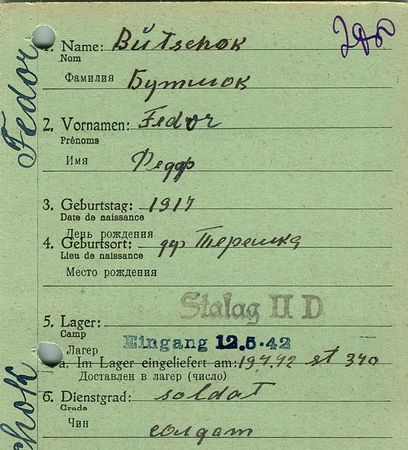 280
1. Name: Bütschok
Nom
Фамилия Бутшок
2. Vornamen: Fedor
Prénoms
Имя Федор
3. Geburtstag: 1917
Date de naissance
День рождения
4. Geburtsort: др Терешка
Lieu de naissance
Место рождения
Stalag II D
5. Lager:
Camp
Лагерь
Eingang 12.5.42
a. Im Lager eingeliefert am: 19.4.42 st 340
Доставлен в лагер (число)
6. Dienstgrad: soldat
Grade
Чин солдат
Fedor
chok